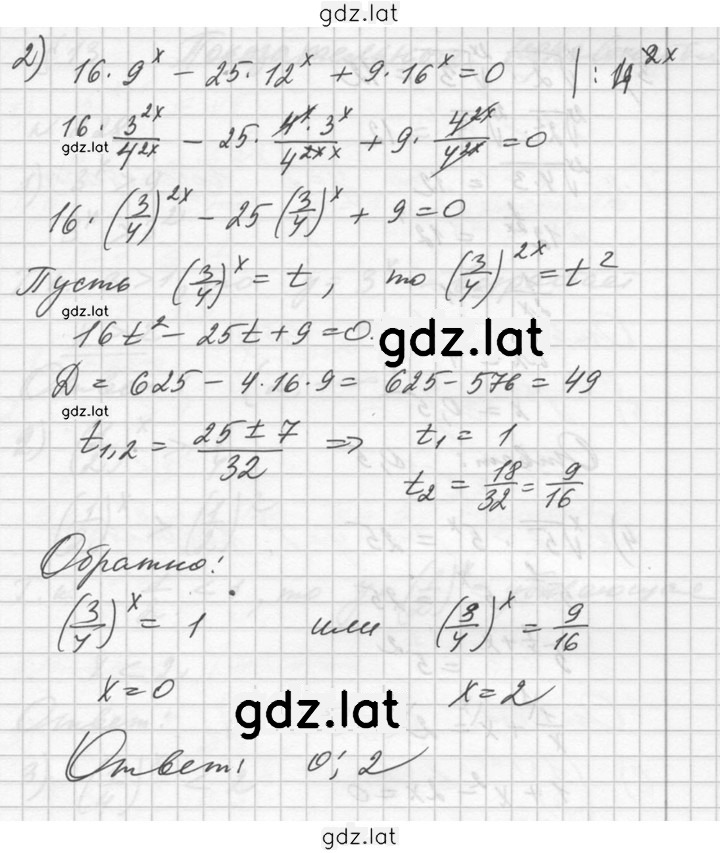 gdz.lat
2) 16·9^x − 25·12^x + 9·16^x = 0 | : 4^2x
16· 3^2x/4^2x − 25· 4^x·3^x/4^2x x + 9· 4^2x/4^2x = 0
gdz.lat
16·(3/4)^2x − 25(3/4)^x + 9 = 0
Пусть (3/4)^x = t, то (3/4)^2x = t^2
gdz.lat
16t^2 − 25t + 9 = 0.
gdz.lat
Д = 625 − 4·16·9 = 625 − 576 = 49
gdz.lat
t1,2 = 25 ± 7/32 => t1 = 1
t2 = 18/32 = 9/16
Обратно:
(3/4)^x = 1 или (3/4)^x = 9/16
x = 0 x = 2
gdz.lat
Ответ: 0; 2
gdz.lat